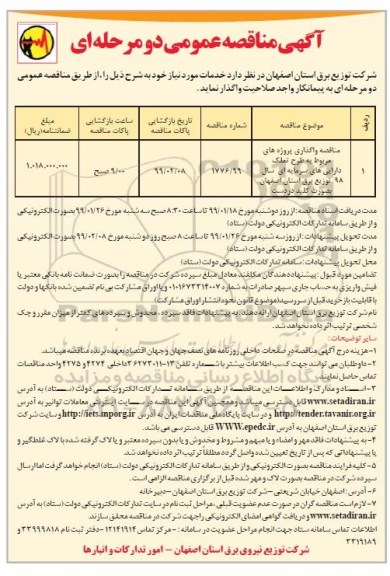 آگهی مناقصه عمومی دو مرحله ای
شرکت توزیع برق استان اصفهان در نظر دارد خدمات مورد نیاز خود به شرح ذیل را، از طریق مناقصه عمومی
دو مرحله ای به پیمانکار واجد صلاحیت واگذار نماید.
ردیف
موضوع مناقصه
شماره مناقصه
تاریخ بازگشایی پاکات مناقصه
ساعت بازگشایی پاکات مناقصه
مبلغ ضمانتنامه(ریال)
۱
مناقصه واگذاری پروژه های
مربوط به طرح تملک
دارایی های سرمایه ای سال
۹۸ توزیع برق استان اصفهان
بصورت کلید در دست
۹۹/۰۲/۰۸
۹/۰۰ صبح
۱.۰۱۸.۰۰۰.۰۰۰
مدت دریافت اسناد مناقصه: از روز دوشنبه مورخ ۹۹/۰۱/۱۸ تا ساعت ۸:۳۰ صبح سه شنبه مورخ ۹۹/۰۱/۲۶ بصورت الکترونیکی
و از طریق سامانه تدارکات الکترونیکی دولت (ستاد)
مدت تحویل پیشنهادات: از روز سه شنبه مورخ ۹۹/۰۱/۲۶ تا ساعت ۸ صبح روز دوشنبه مورخ ۹۹/۰۲/۰۸ بصورت الکترونیکی
و از طریق سامانه تدارکات الکترونیکی دولت (ستاد)
محل تحویل پیشنهادات: سامانه تدارکات الکترونیکی دولت (ستاد)
تضامین مورد قبول: پیشنهاد دهندگان مکلفند معادل مبلغ سپرده شرکت در مناقصه را بصورت ضمانت نامه بانکی معتبر یا
فیش واریزی به حساب جاری سپهر صادرات به شماره ۰۱۰۱۶۷۳۳۱۴۰۰۷ و یا اوراق مشارکت بی نام تضمین شده بانکها و دولت
با قابلیت باز خرید قبل از سررسید (موضوع قانون نحوه انتشار اوراق مشارکت)
نام شرکت توزیع برق استان اصفهان ارائه دهند. به پیشنهادات فاقد سپرده، مخدوش و سپرده های کمتر از میزان مقرر و چک
شخصی ترتیب اثر داده نخواهد شد.
سایر توضیحات:
۱- هزینه درج آگهی مناقصه در صفحات داخلی روزنامه های نصف جهان و جهان اقتصاد بعهده برنده مناقصه میباشد.
تماس حاصل نمایند.
۳- اسناد و مدارک و اطلاعات این مناقصه از طریق سامانه تدارکات الکترونیکی دولت (ستاد) به آدرس
www.setadiran.ir قابل دسترسی میباشد و همچنین آگهی این مناقصه در سایت اینترنتی معاملات توانیر به آدرس
http://tender.tavanir.org.ir و در سایت پایگاه ملی مناقصات ایران به آدرس http://iets.mporg.ir و سایت شرکت
توزیع برق استان اصفهان به آدرس WWW.epedc.ir قابل دسترسی می باشد.
۴- به پیشنهادات فاقد مهر و امضاء و یا مبهم و مشروط و مخدوش و یا بدون سپرده معتبر و یا لاک گرفته شده با لاک غلط گیر و
یا پیشنهاداتی که پس از تاریخ تعیین شده واصل گردد مطلقا ترتیب اثر داده نخواهد شد.
۵- کلیه فرایند مناقصه بصورت الکترونیکی و از طریق سامانه تدارکات الکترونیکی دولت (ستاد) انجام خواهد گرفت اما ارسال
سپرده شرکت در مناقصه بصورت لاک و مهر شده قبل از برگزاری مناقصه الزامی است.
۶- آدرس: اصفهان خیابان شریعتی-شرکت توزیع برق استان اصفهان -دبیرخانه
۷- لازم است مناقصه گران در صورت عدم عضویت قبلی، مراحل ثبت نام در سایت تدارکات الکترونیکی دولت (ستاد) به آدرس
www.setadiran.ir و دریافت گواهی امضای الکترونیکی را جهت شرکت در مناقصه محقق سازند.
شرکت توزیع نیروی برق استان اصفهان - امور تدارکات و انبارها